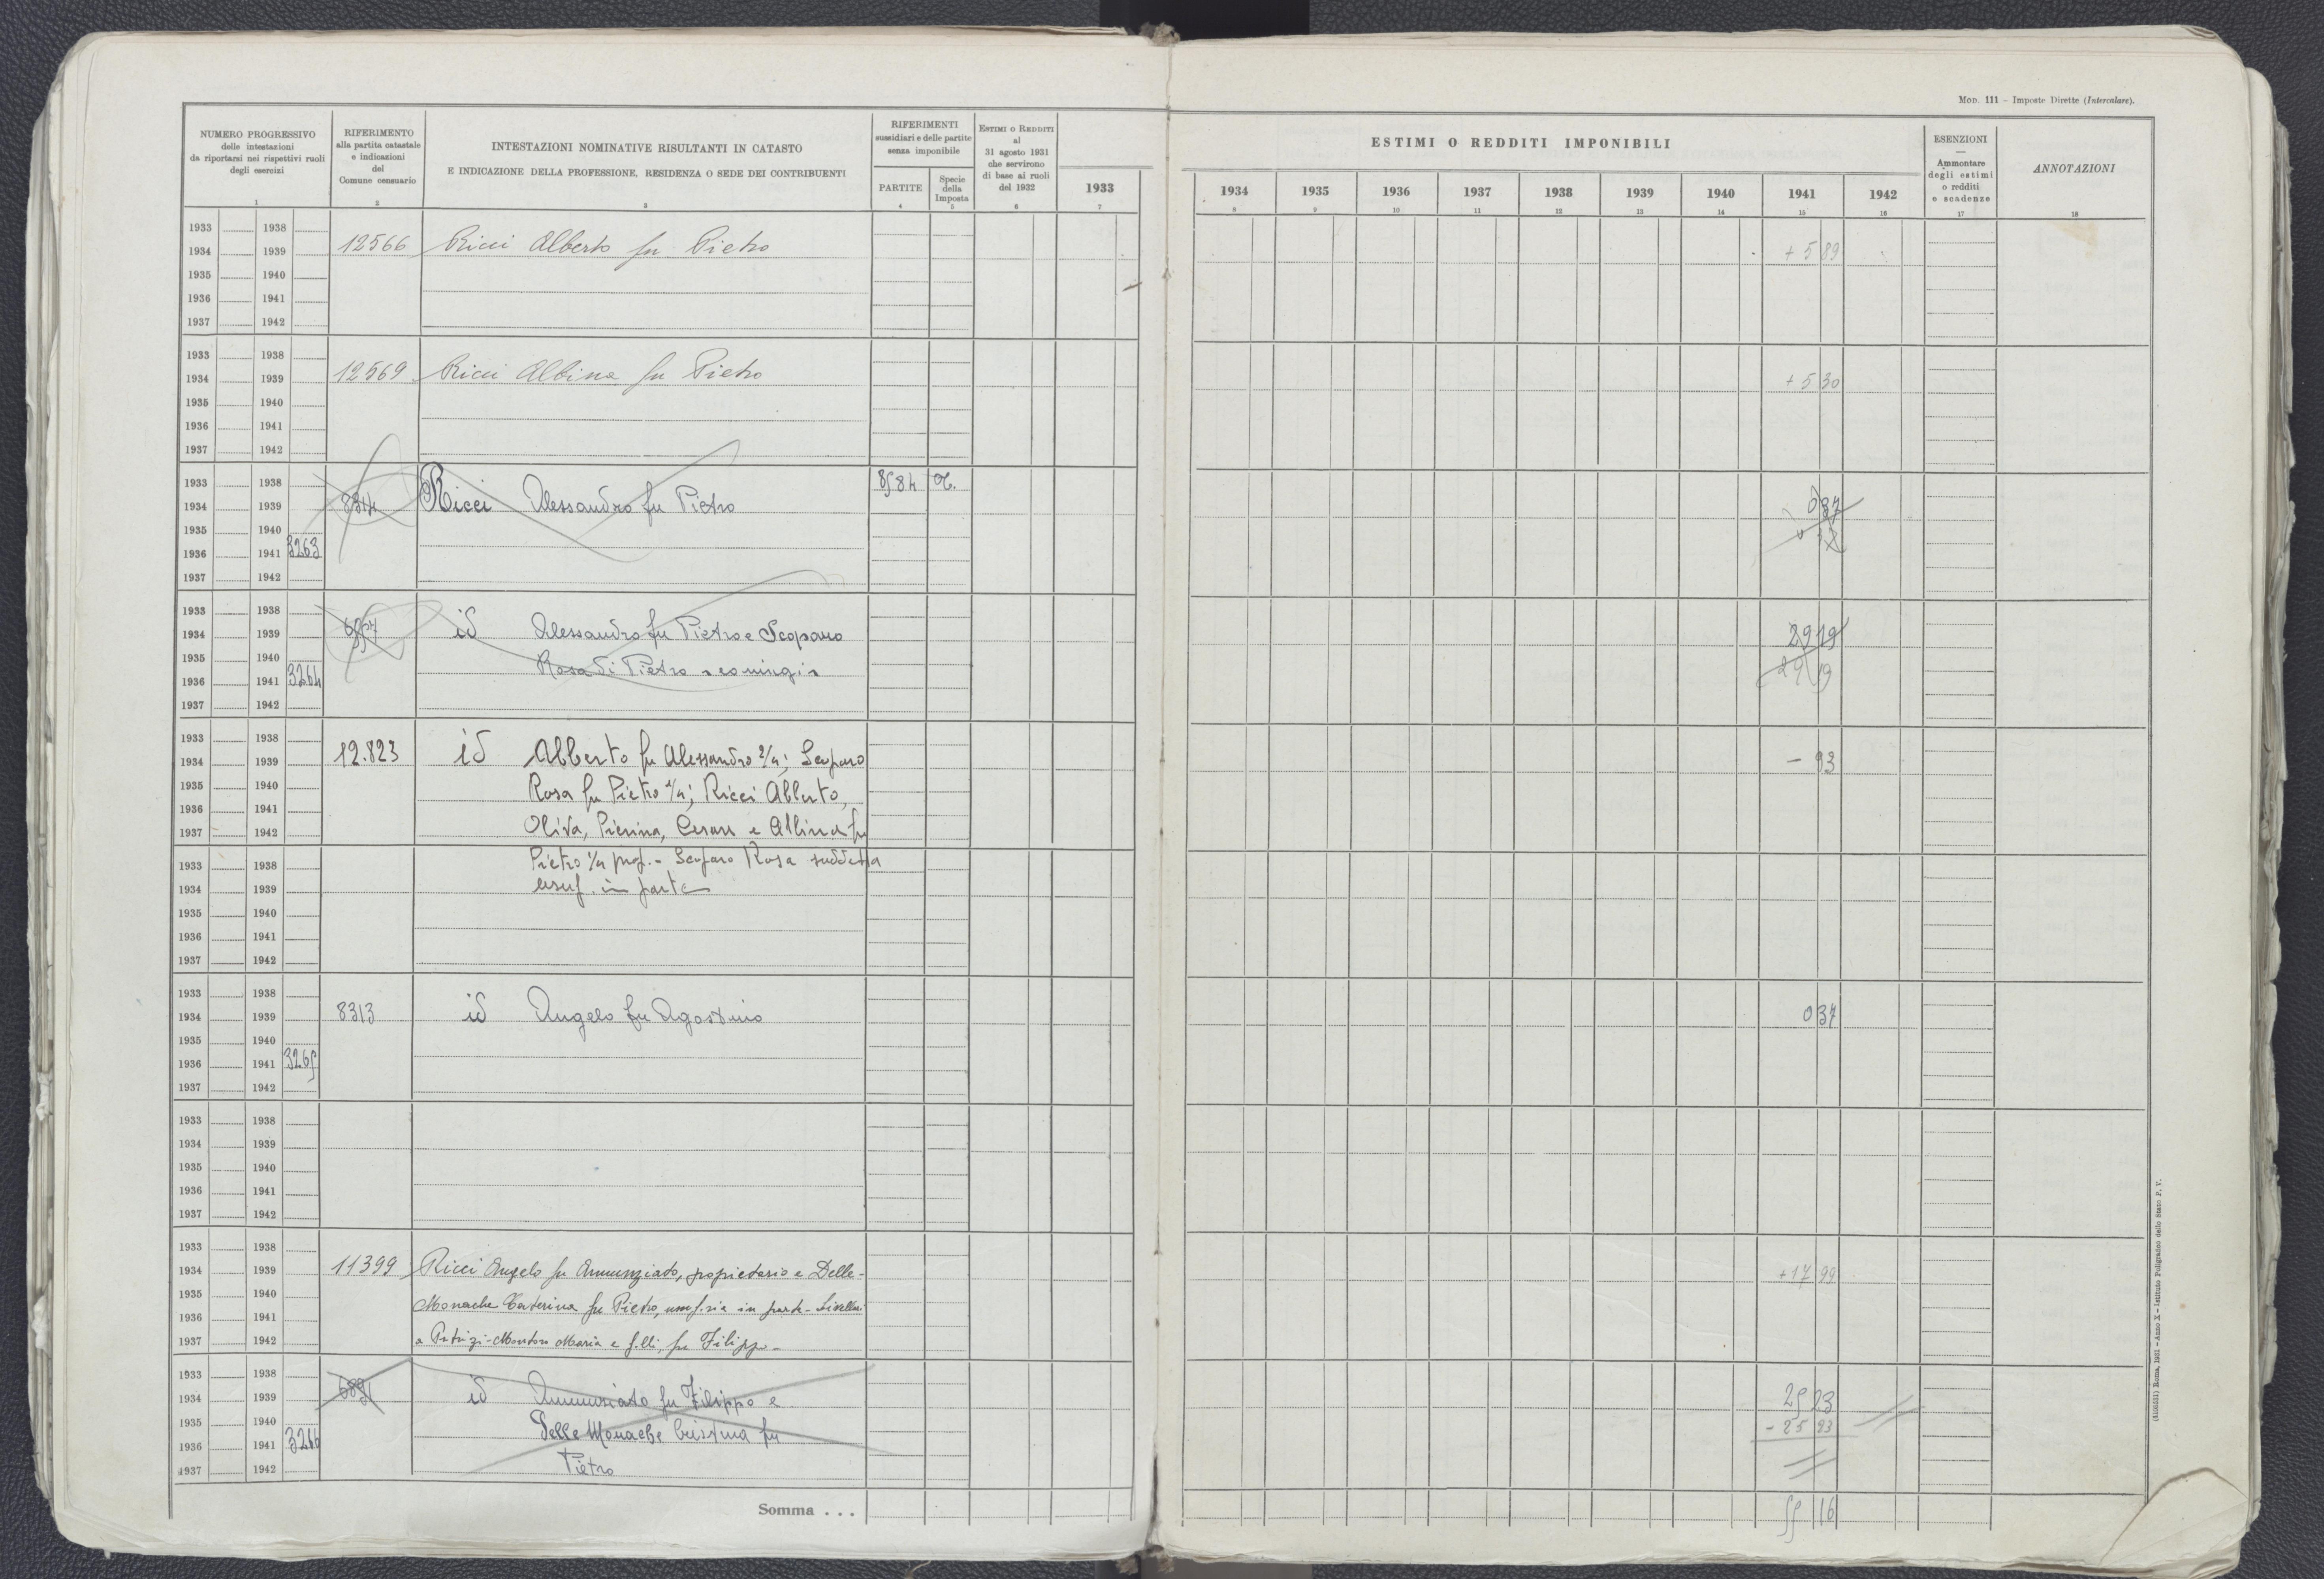 MOD. 111 - Imposte Dirette (Intercalare).
NUMERO PROGRESSIVO
delle intestazioni
da riportarsi nei rispettivi ruoli
degli esercizi
1
RIFERIMENTO
alla partita catastale
e indicazioni
del
Comune censuario
2
INTESTAZIONI NOMINATIVE RISULTANTI IN CATASTO
E INDICAZIONE DELLA PROFESSIONE, RESIDENZA O SEDE DEI CONTRIBUENTI
3
RIFERIMENTI
sussidiari e delle partite
senza imponibile
PARTITE
4
Specie
della
Imposta
5
ESTIMI O REDDITI
al
31 agosto 1931
che servirono
di base ai ruoli
del 1932
6
1933
7
ESTIMI O REDDITI IMPONIBILI
1934 1935 1936 1937 1938 1939 1940 1941 1942
8 9 10 11 12 13 14 15 16
ESENZIONI
—
Ammontare
degli estimi
o redditi
e scadenze
17
ANNOTAZIONI
18
1933 1938
1934 1939 12566 Ricci Alberto fu Pietro + 5 89
1935 1940
1936 1941
1937 1942
1933 1938
1934 1939 12569 Ricci Albina fu Pietro + 5 30
1935 1940
1936 1941
1937 1942
1933 1938 8584
1934 1939 8314 Ricci Alessandro fu Pietro 0 37
1935 1940
1936 1941 3263
1937 1942
1933 1938
1934 1939 id Alessandro fu Pietro e Scoparo 29 19
1935 1940 Rosa di Pietro coniugi 29 19
1936 1941 3264
1937 1942
1933 1938
1934 1939 12.823 id Alberto fu Alessandro 2/4; Scoparo - 93
1935 1940 Rosa fu Pietro 1/4; Ricci Alberto,
1936 1941
1937 1942 Oliva, Pierina, Cesare e Albina fu
1933 1938 Pietro 1/4 prop. - Scoparo Rosa suddetta
1934 1939 usuf. in parte
1935 1940
1936 1941
1937 1942
1933 1938
1934 1939 8313 id Angelo fu Agostino 0 37
1935 1940
1936 1941 3265
1937 1942
1933 1938
1934 1939
1935 1940
1936 1941
1937 1942
1933 1938
1934 1939 11399 Ricci Angelo fu Annunziato, proprietario e Delle- + 17 99
1935 1940 Monache Caterina fu Pietro, usuf.ria in parte - Livellari
1936 1941
1937 1942 a Patrizi-Montoro Maria e f.lli, fu Filippo -
1933 1938
1934 1939 id Annunziato fu Filippo e 25 23
1935 1940 Delle Monache Cristina fu
1936 1941 3266
1937 1942 Pietro
Somma . . . 55 16
(4105531) Roma, 1931 - Anno X - Istituto Poligrafico dello Stato P. V.